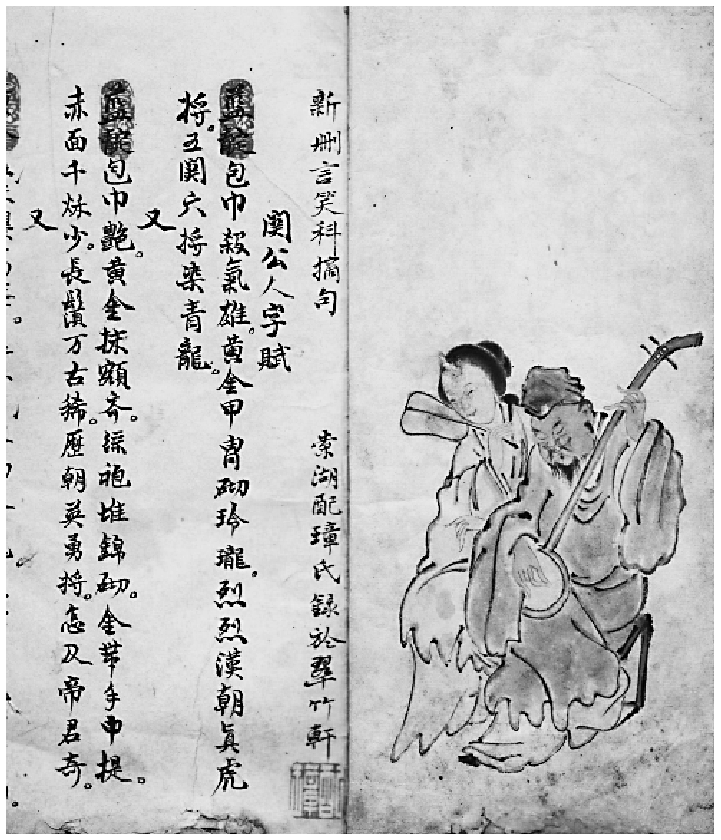 新刪言笑科摘句 棠湖配璋氏錄於翠竹軒
関公人字賦
包巾殺氣雄。黄金甲胄砌玲瓏。烈烈漢朝真虎
將。五関六將染青龍。
又
包巾艶。黄金抹額奇。綵袍堆錦砌。金帶手中提。
赤面千秌少。長鬚万古稀。歷朝英勇將。怎及帝君奇。
又